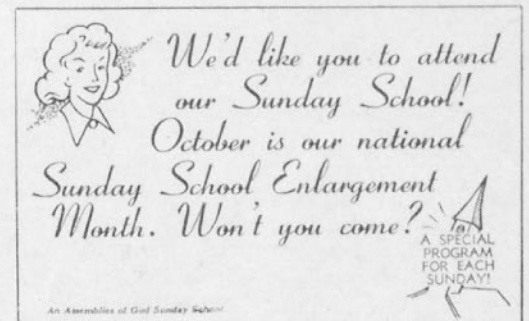 We'd like you to attend
our Sunday School!
October is our national
Sunday School Enlargement
Month. Won't you come?
A SPECIAL
PROGRAM
FOR EACH
SUNDAY!
An Assemblies of God Sunday School